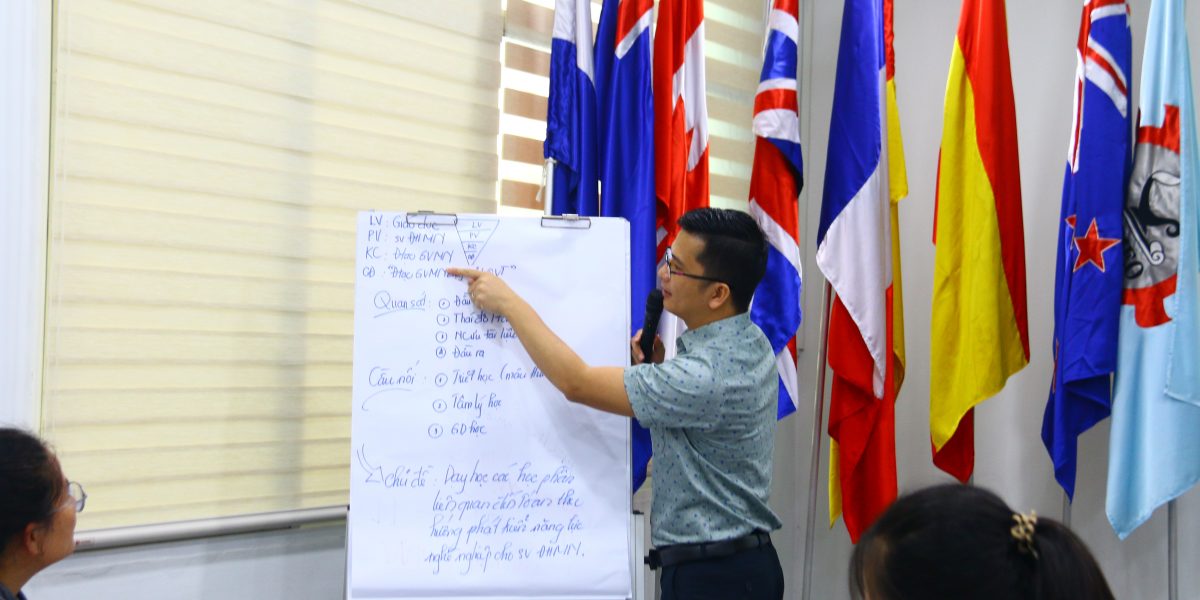 LV : Giáo dục
PV : SV ĐHMN
KC : Đtạo GVMN
QĐ : "Đtạo GVMN
LV
PV
KC
QĐ
Quan sát : ① Đầu
② Thái độ
③ NCứu tài liệu
④ Đầu ra
Cầu nối : ① Triết học (mâu
② Tâm lý học
③ GD học
Chủ đề : Dạy học các học phần
liên quan đến toán theo
hướng phát triển năng lực
nghề nghiệp cho SV ĐHMN.